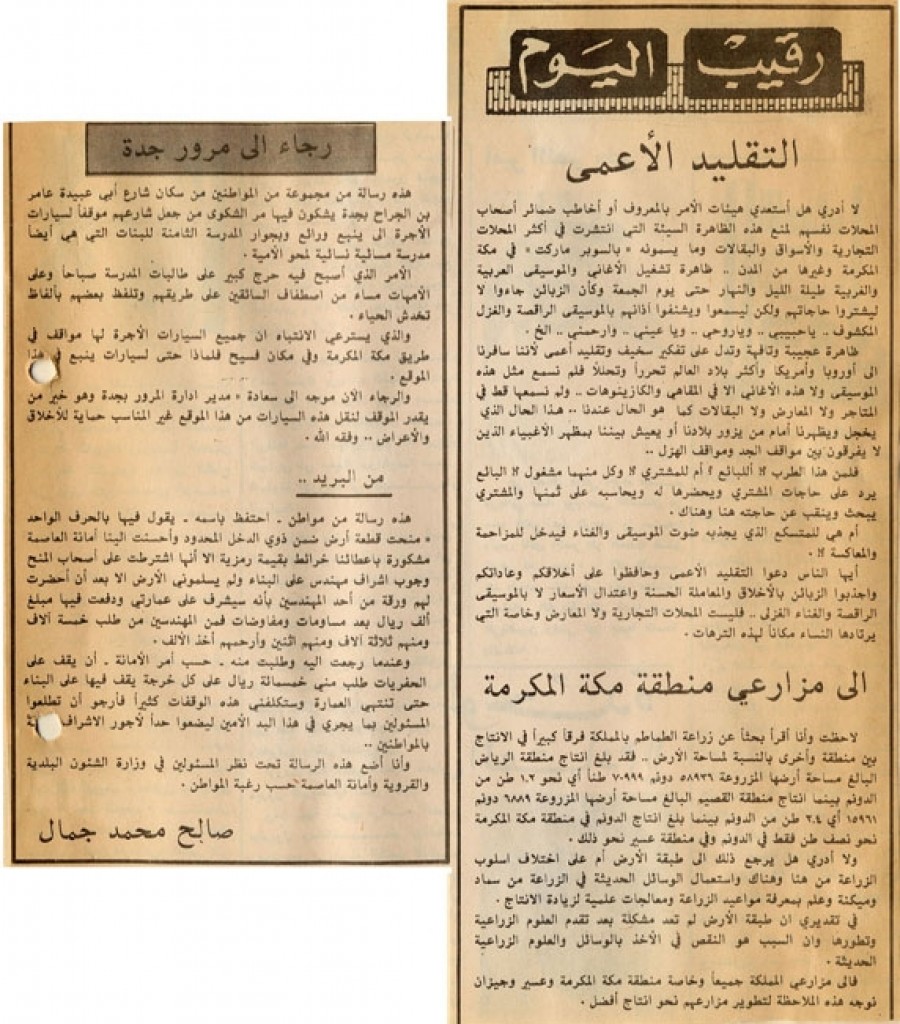 رقيب اليوم
التقليد الأعمى
لا أدري هل أستعدي هيئات الأمر بالمعروف أو أخاطب ضمائر أصحاب
المحلات نفسهم لمنع هذه الظاهرة السيئة التي انتشرت في أكثر المحلات
التجارية والأسواق والبقالات وما يسمونه « بالسوبر ماركت » في مكة
المكرمة وغيرها من المدن .. ظاهرة تشغيل الأغاني والموسيقى العربية
والغربية طيلة الليل والنهار حتى يوم الجمعة وكأن الزبائن جاءوا لا
ليشتروا حاجاتهم ولكن ليسمعوا ويشنفوا آذانهم بالموسيقى الراقصة والغزل
المكشوف . ياحبيبي .. وياروحي .. ويا عيني .. وارحمني .. الخ .
ظاهرة عجيبة وتافهة وتدل على تفكير سخيف وتقليد أعمى لأننا سافرنا
الى أوروبا وأمريكا وأكثر بلاد العالم تحرراً وتحللاً فلم نسمع مثل هذه
الموسيقى ولا هذه الأغاني الا في المقاهي والكازينوهات .. ولم نسمعها قط في
المتاجر ولا المعارض ولا البقالات كما هو الحال عندنا .. هذا الحال الذي
يخجل ويظهرنا أمام من يزور بلادنا أو يعيش بيننا بمظهر الأغبياء الذين
لا يفرقون بين مواقف الجد ومواقف الهزل ..
فلمن هذا الطرب ؟! أللبائع ؟ أم للمشتري ؟! وكل منهما مشغول ؟! البائع
يرد على حاجات المشتري ويحضرها له ويحاسبه على ثمنها والمشتري
يبحث وينقب عن حاجته هنا وهناك .
أم هي للمتسكع الذي يجذبه صوت الموسيقى والغناء فيدخل للمزاحمة
والمعاكسة ؟! .
أيها الناس دعوا التقليد الأعمى وحافظوا على أخلاقكم وعاداتكم
واجذبوا الزبائن بالأخلاق والمعاملة الحسنة واعتدال الأسعار لا بالموسيقى
الراقصة والغناء الغزلي .. فليست المحلات التجارية ولا المعارض وخاصة التي
يرتادها النساء مكاناً لهذه الترهات .
الى مزارعي منطقة مكة المكرمة
لاحظت وأنا أقرأ بحثاً عن زراعة الطماطم بالمملكة فرقاً كبيراً في الانتاج
بين منطقة وأخرى بالنسبة لمساحة الأرض .. فقد بلغ انتاج منطقة الرياض
البالغ مساحة أرضها المزروعة ٥٨٩٣٦ دونم ٧٠٩٩٩ طناً أي نحو ١،٢ طن من
الدونم بينما انتاج منطقة القصيم البالغ مساحة أرضها المزروعة ٦٨٨٩ دونم
١٥٩٦١ أي ٢،٤ طن من الدونم بينما بلغ انتاج الدونم في منطقة مكة المكرمة
نحو نصف طن فقط في الدونم وفي منطقة عسير نحو ذلك .
ولا أدري هل يرجع ذلك الى طبقة الأرض أم على اختلاف اسلوب
الزراعة من هنا وهناك واستعمال الوسائل الحديثة في الزراعة من سماد
وميكنة وعلم بمعرفة مواعيد الزراعة ومعالجات علمية لزيادة الانتاج .
في تقديري ان طبقة الأرض لم تعد مشكلة بعد تقدم العلوم الزراعية
وتطورها وان السبب هو النقص في الأخذ بالوسائل والعلوم الزراعية
الحديثة .
فالى مزارعي المملكة جميعاً وخاصة منطقة مكة المكرمة وعسير وجيزان
نوجه هذه الملاحظة لتطوير مزارعهم نحو انتاج أفضل .
رجاء الى مرور جدة
هذه رسالة من مجموعة من المواطنين من سكان شارع أبي عبيدة عامر
بن الجراح بجدة يشكون فيها مر الشكوى من جعل شارعهم موقفاً لسيارات
الأجرة الى ينبع ورائع وبجوار المدرسة الثامنة للبنات التي هي أيضاً
مدرسة مسائية نسائية لمحو الأمية .
الأمر الذي أصبح فيه حرج كبير على طالبات المدرسة صباحاً وعلى
الأمهات مساء من اصطفاف السائقين على طريقهم وتلفظ بعضهم بألفاظ
تخدش الحياء .
والذي يسترعي الانتباه ان جميع السيارات الأجرة لها مواقف في
طريق مكة المكرمة وفي مكان فسيح فلماذا حتى لسيارات ينبع في هذا
الموقع .
والرجاء الآن موجه الى سعادة « مدير ادارة المرور بجدة وهو خير من
يقدر الموقف لنقل هذه السيارات من هذا الموقع غير المناسب حماية للأخلاق
والأعراض .. وفقه الله .
من البريد ..
هذه رسالة من مواطن ـ احتفظ باسمه ـ يقول فيها بالحرف الواحد
« منحت قطعة أرض ضمن ذوي الدخل المحدود وأحسنت الينا أمانة العاصمة
مشكورة باعطائنا خرائط بقيمة رمزية الا أنها اشترطت على أصحاب المنح
وجوب اشراف مهندس على البناء ولم يسلموني الأرض الا بعد أن أحضرت
لهم ورقة من أحد المهندسين بأنه سيشرف على عمارتي ودفعت فيها مبلغ
ألف ريال بعد مساومات ومفاوضات فمن المهندسين من طلب خمسة آلاف
ومنهم ثلاثة آلاف ومنهم اثنين وأرحمهم أخذ الألف .
وعندما رجعت اليه وطلبت منه ـ حسب أمر الأمانة ـ أن يقف على
الحفريات طلب مني خمسمائة ريال على كل خرجة يقف فيها على البناء
حتى تنتهي العمارة وستكلفني هذه الوقفات كثيراً فأرجو أن تطلعوا
المسئولين بما يجري في هذا البلد الأمين ليضعوا حداً لأجور الاشراف
بالمواطنين ..
وأنا أضع هذه الرسالة تحت نظر المسئولين في وزارة الشئون البلدية
والقروية وأمانة العاصمة حسب رغبة المواطن .
صالح محمد جمال